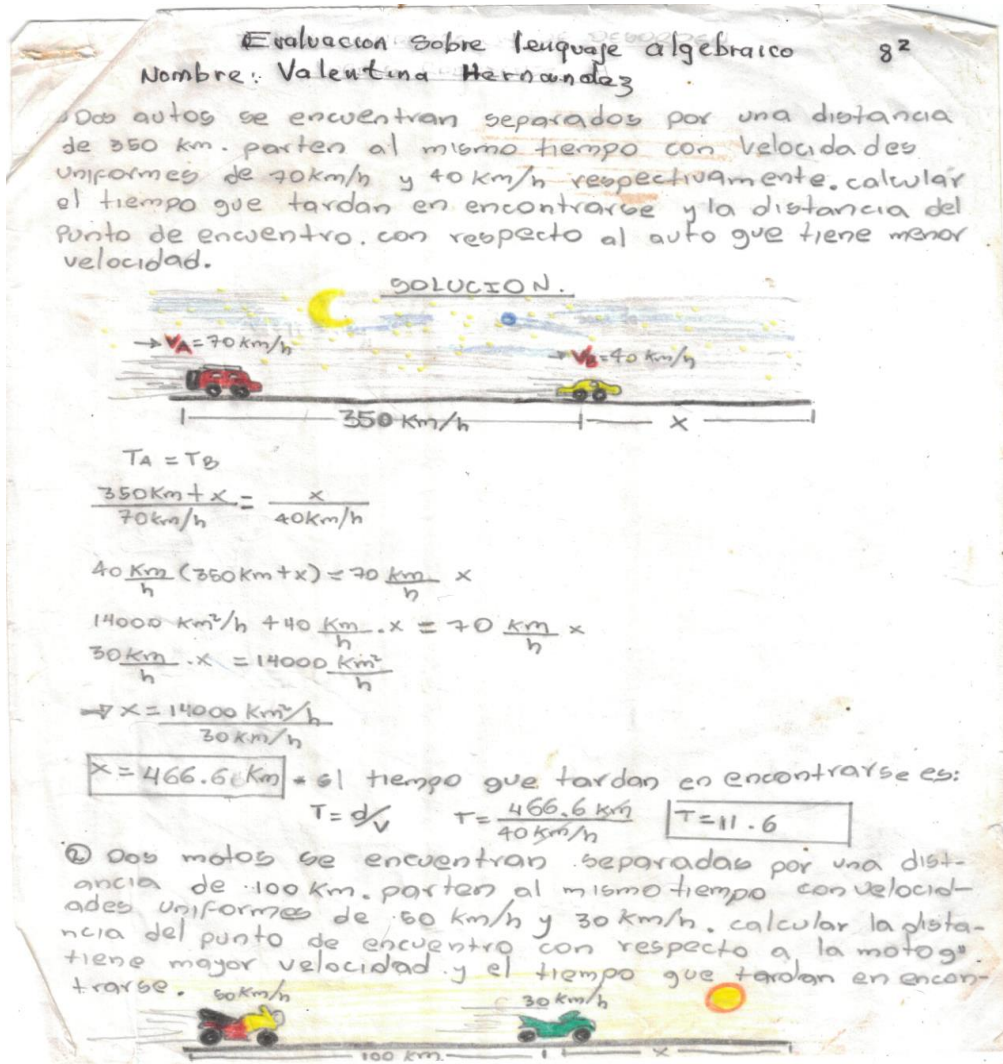 Evaluacion sobre lenguaje algebraico 8²
Nombre: Valentina Hernandez
Dos autos se encuentran separados por una distancia
de 350 km. parten al mismo tiempo con velocidades
uniformes de 70km/h y 40 km/h respectivamente. calcular
el tiempo que tardan en encontrarse y la distancia del
Punto de encuentro. con respecto al auto que tiene menor
velocidad.
SOLUCION.
→ VA = 70 km/h
→ VB = 40 km/h
350 Km/h x
TA = TB
350Km + x / 70km/h = x / 40km/h
40 Km/h (350Km+x) = 70 km/h x
14000 Km²/h + 40 Km/h . x = 70 km/h x
30 km/h . x = 14000 Km²/h
→ x = 14000 Km²/h / 30 Km/h
x = 466.6 Km • el tiempo que tardan en encontrarse es:
T = d/v T = 466.6 km / 40 Km/h T = 11.6
② Dos motos se encuentran separadas por una dist-
ancia de 100 km. parten al mismo tiempo con velocid-
ades uniformes de 50 km/h y 30 km/h. calcular la dista-
ncia del punto de encuentro con respecto a la moto q"
tiene mayor velocidad y el tiempo que tardan en encon-
trarse.
50 Km/h
30 km/h
100 km. x